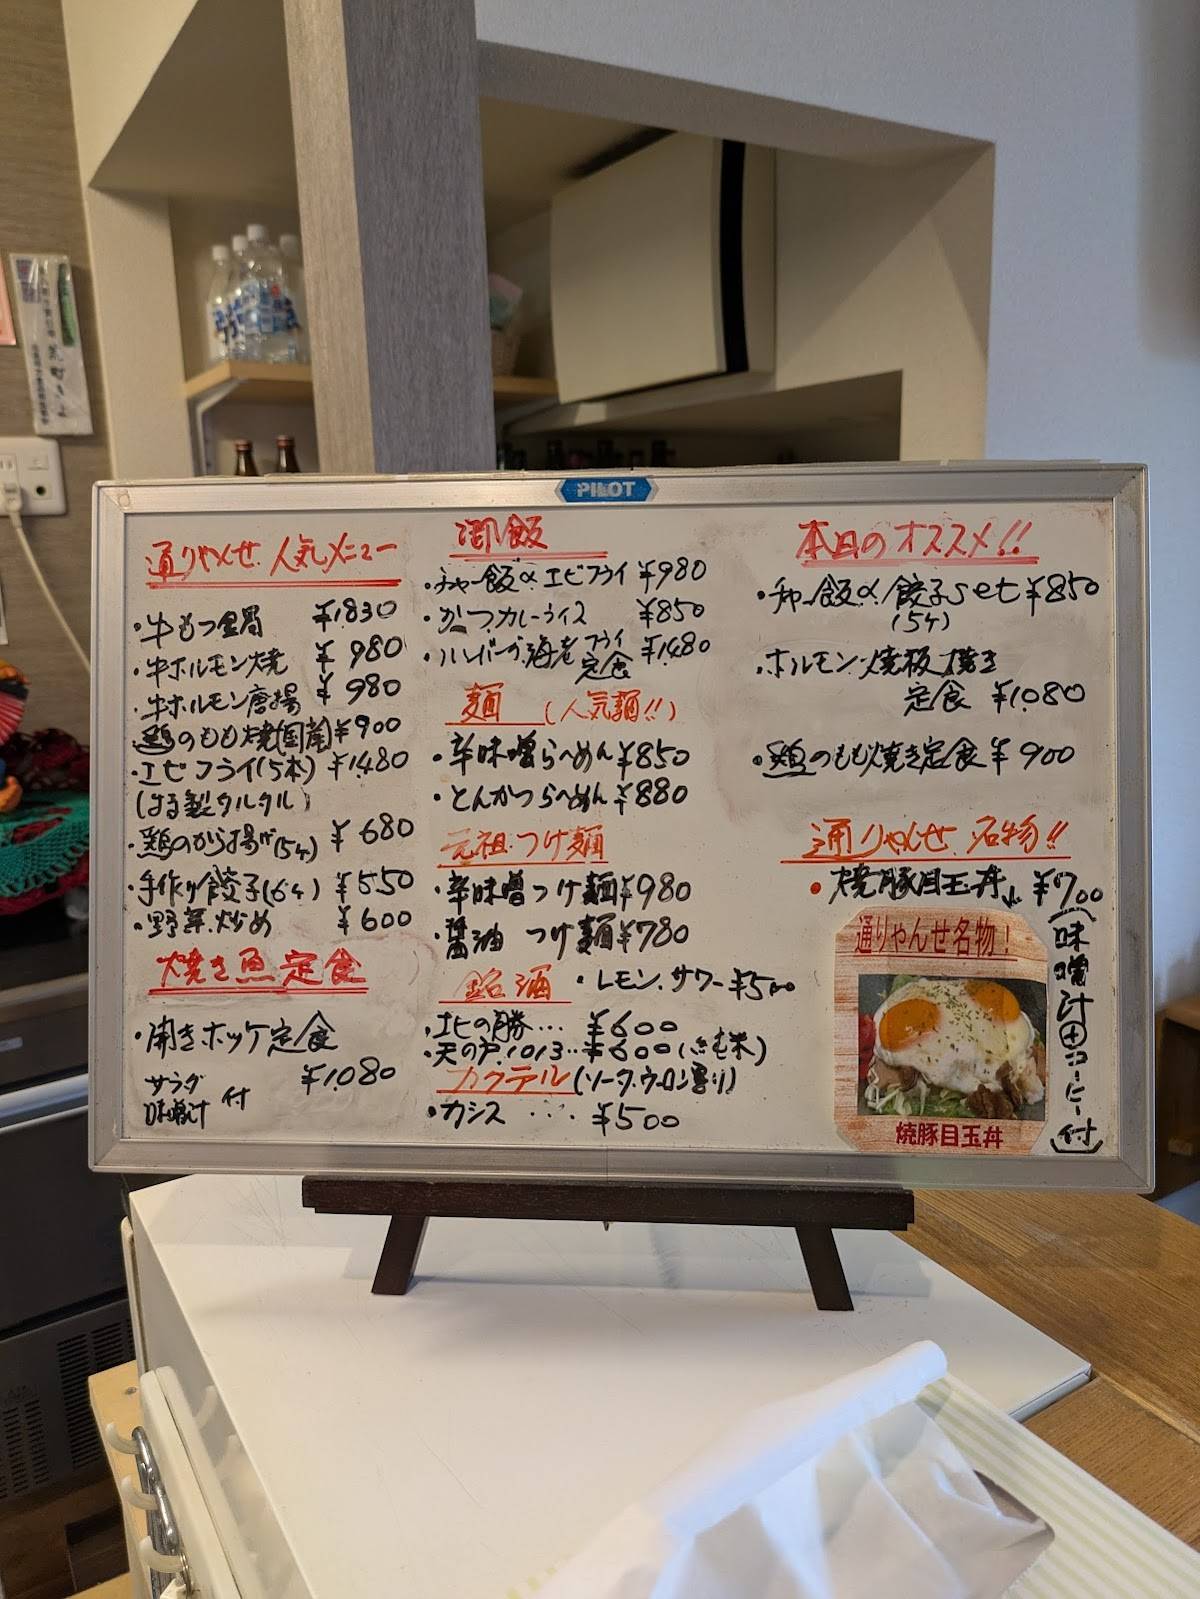 PILOT
通りゃんせ 人気メニュー
・牛もつ鍋 ¥1,830
・牛ホルモン焼 ¥980
・牛ホルモン唐揚 ¥980
・鶏のもも焼(国産) ¥900
・エビフライ(5本) ¥1,480
(はる製タルタル)
・鶏のから揚げ(5ヶ) ¥680
・手作り餃子(6ヶ) ¥550
・野菜炒め ¥600
焼き魚定食
・開きホッケ定食
¥1,080
サラダ
味噌汁 付
御飯
・チャー飯&エビフライ ¥980
・かつカレーライス ¥850
・ハンバーグ.海老フライ定食 ¥1,480
麺 (人気麺!!)
・辛味噌らーめん ¥850
・とんかつらーめん ¥880
元祖.つけ麺
・辛味噌つけ麺 ¥980
・醤油 つけ麺 ¥780
銘酒
・レモン.サワー ¥500
・北の勝… ¥600
・天の戸.1013… ¥600(純米)
カクテル(ソーダ.ウーロン割り)
・カシス ‥‥ ¥500
本日のオススメ!!
・チャー飯&餃子set ¥850
(5ヶ)
・ホルモン.焼鉄板焼き
定食 ¥1,080
・鶏のもも焼き定食 ¥900
通りゃんせ.名物!!
・焼豚目玉丼 ¥700
(味噌汁 コーヒー付)
通りゃんせ名物!
焼豚目玉丼